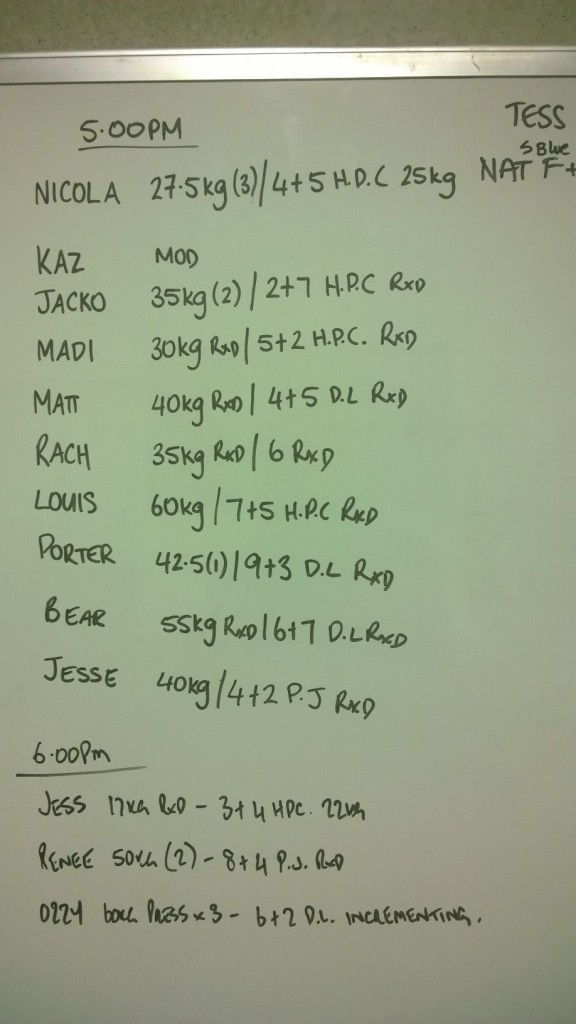 5.00PM
NICOLA 27.5kg (3)/4+5 H.D.C 25kg
KAZ MOD
JACKO 35kg (2) / 2+7 H.P.C RxD
MADI 30kg RxD / 5+2 H.P.C. RxD
MATT 40kg RxD / 4+5 D.L RxD
RACH 35kg RxD / 6 RxD
LOUIS 60kg / 7+5 H.P.C RxD
PORTER 42.5(1) / 9+3 D.L RxD
BEAR 55kg RxD / 6+7 D.L RxD
JESSE 40kg / 4+2 P.J RxD
6.00Pm
JESS 17KG RxD - 3+4 HPC. 22KG
RENEE 50KG (2) - 8+4 P.J. RxD
60KG PRESS x 3 - 6+2 D.L. INCREMENTING.
TESS
5 Blue
NAT F+